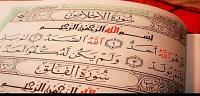 سُورَةُ الإِخْلَاصِ
بِسْمِ اللَّهِ الرَّحْمَٰنِ الرَّحِيمِ
هُوَ اللَّهُ أَحَدٌ اللَّهُ الصَّمَدُ
وَلَمْ يَكُن لَّهُ كُفُوًا أَحَدٌ
سُورَةُ الْفَلَقِ
بِسْمِ اللَّهِ الرَّحْمَٰنِ الرَّحِيمِ